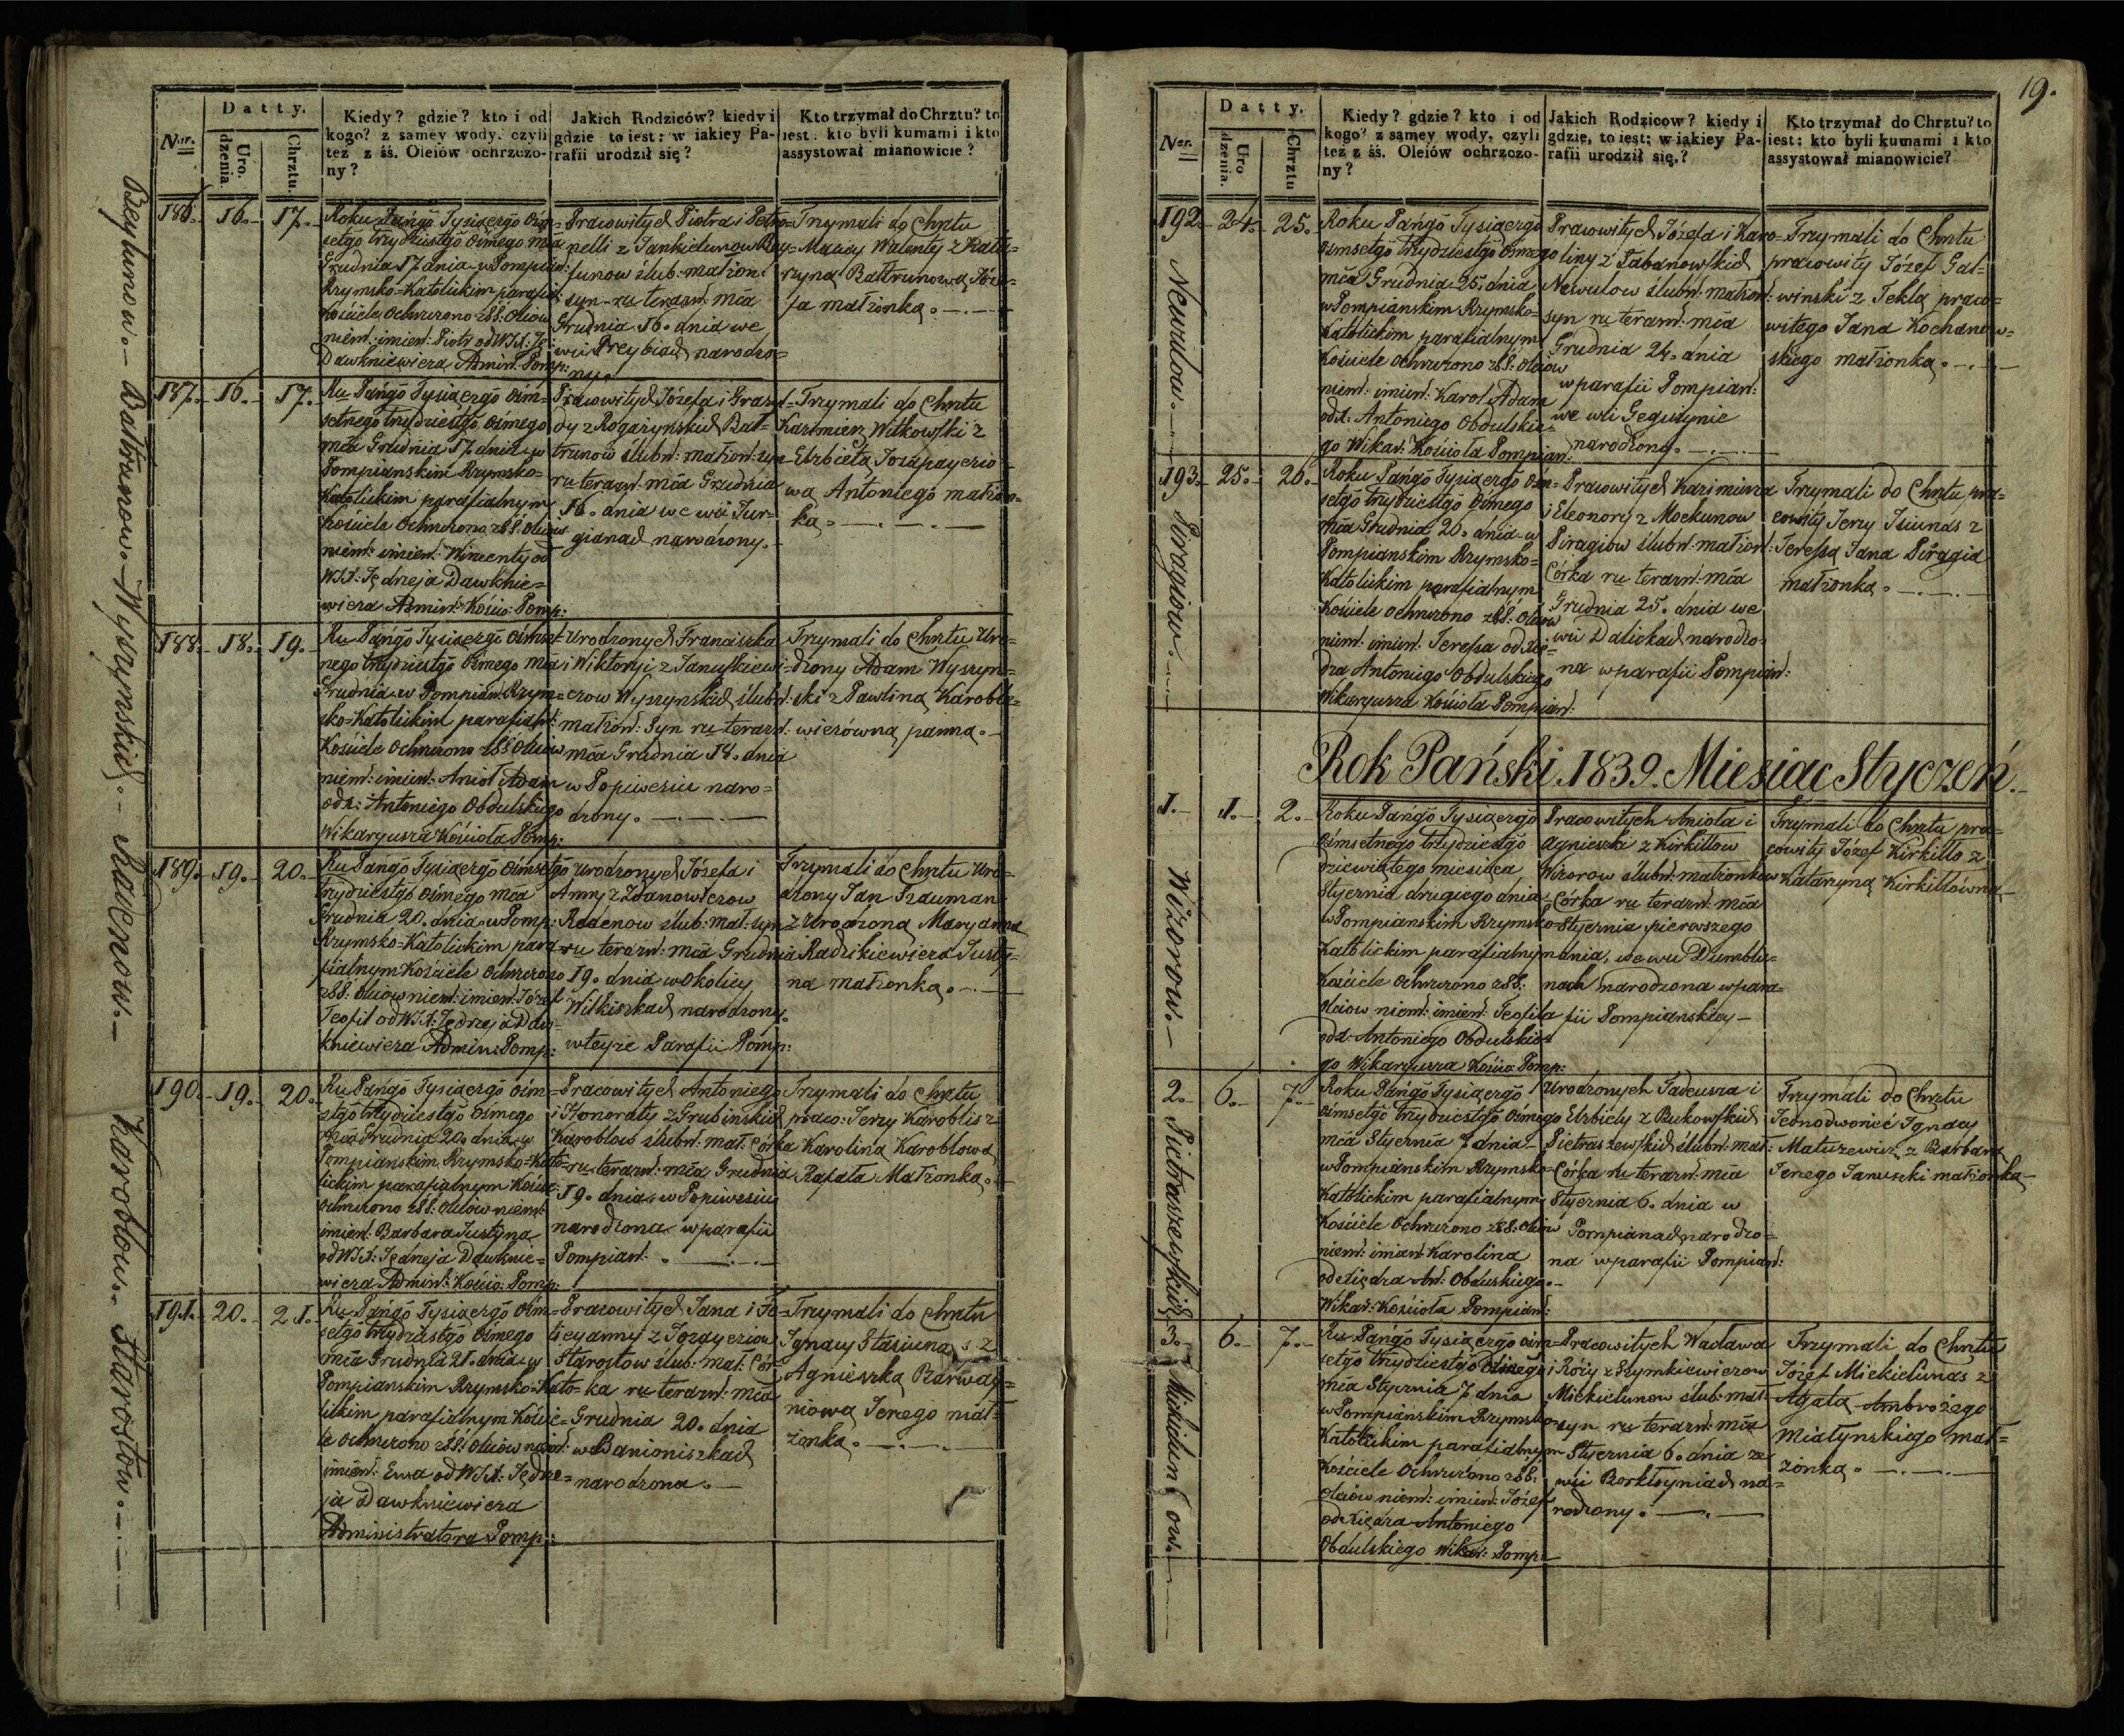 Nar.
Datty.
Uro.
dzenia.
Chrztu.
Kiedy? gdzie? kto i od
kogo? z samey wody, czyli
też z śś. Oleiów ochrzczo-
ny?
Jakich Rodziców? kiedy i
gdzie to iest: w iakiey Pa-
rafii urodził się?
Kto trzymał do Chrztu? to
iest: kto byli kumami i kto
assystował mianowicie?
Beytunow.- Bałtrunow.- Wyszynskich.- Radenow.- Karoblow.- Starostów.-
186.- 16.- 17.-
Roku Pańgo Tysiącgo Ośm=
setgo trzydziestgo ósmego mca
Grudnia 17 dnia w Pompian:
Rzymsko=Katolickim parafial:
Kościele Ochrzczono zSS: Oleiow
niem: imien: Piotr od WJX: Ję:
Dawkniewicza Admin. Pomp:
Pracowitych Piotra i Petro=
nelli z Jankielunow Bey=
tunow ślub: małżon:
syn ru terazń: mca
Grudnia 16. dnia we
wsi Preybiach narodzo=
ny.
Trzymali do Chrztu
Maciey Walenty z Kata=
rzyną Bałtrunową Józe=
fa małżonką.
187.- 16.- 17.-
Ru Pańgo Tysiącgo Ośm=
setnego trzydziestgo ósmego
mca Grudnia 17 dnia w
Pompianskim Rzymsko=
Katolickim parafialnym
Kościele Ochrzczono zSS: Oleiow
niem: imien: Wincenty od
WJX: Jędrzeja Dawknie=
wicza Admin: Kościo: Pomp:
Pracowitych Józefa i Grasyl=
dy z Rogażynskich Bał=
trunow ślubn: małżon: syn
ru terazń: mca Grudnia
16. dnia we wsi Jur=
gianach narodzony.
Trzymali do Chrztu
Kazimierz Witkowski z
Elżbietą Jozapaycio=
wą Antoniego małżon=
ką.
188.- 18.- 19.-
Ru Pańgo Tysiącgo Ośmset=
nego trzydziestgo ósmego mca
Grudnia w Pompian: Rzym=
sko=Katolickim parafialn:
Kościele Ochrzczono zSS Oleiów
niem: imien: Anioł Adam
od X: Antoniego Obdulskiego
Wikaryusza Kościoła Pomp:
Urodzonych Franciszka
i Wiktoryi z Januszkiewi=
czow Wyszynskich ślubn:
małżon: Syn ru terazń:
mca Grudnia 18. dnia
w Popiwesiu naro=
dzony.
Trzymali do Chrztu Uro=
dzony Adam Wyszyn=
ski z Pawliną Karoble=
wiczówną panną.
189.- 19.- 20.-
Ru Pańgo Tysiącgo Ośmsetgo
trzydziestgo ósmego mca
Grudnia 20. dnia w Pomp:
Rzymsko=Katolickim para=
fialnym Kościele Ochrzczono
zSS: Oleiow niem: imien: Józef
Teofil od WJX: Jędrzeja Daw=
kniewicza Admin: Pomp:
Urodzonych Józefa i
Anny z Zdanowiczow
Radenow ślub: mał: syn
ru terazń: mca Grudnia
19. dnia w okolicy
Wilkiszkach narodzony.
w teyże Parafii Pomp:
Trzymali do Chrztu Uro=
dzony Jan Frauman
z Urodzoną Maryanną
Radzikiewicza Justy=
na małżonką.
190.- 19.- 20.-
Ru Pańgo Tysiącgo Ośm=
stgo trzydziestgo ósmego
mca Grudnia 20. dnia w
Pompianskim Rzymsko=Kato=
lickim parafialnym Kościel:
Ochrzczono zSS: Oleiow niem:
imien: Barbara Justyna
od WJX: Jędrzeja Dawknie=
wicza Admin: Kościo: Pomp:
Pracowitych Antoniego
i Honoraty z Grubinskich
Karoblow ślubn: mał: Córka
ru terazń: mca Grudnia
19. dnia w Popiwesiu
narodzona w parafii
Pompian:
Trzymali do Chrztu
praco: Jerzy Karoblis z
Karoliną Karoblową
Rafała Małżonką.
191.- 20.- 21.-
Ru Pańgo Tysiącgo Ośm=
setgo trzydziestgo ósmego
mca Grudnia 21. dnia w
Pompianskim Rzymsko=Kato=
lickim parafialnym Koście=
le Ochrzczono zSS: Oleiów niem:
imien: Ewa od WJX: Jędrze=
ja Dawkniewicza
Administratora Pomp:
Pracowitych Jana i Fe=
licyanny z Jozayciow
Starostow ślub: mał: Cór=
ka ru terazń: mca
Grudnia 20. dnia
w Banioniszkach
narodzona.
Trzymali do Chrztu
Ignacy Stasiunas z
Agnieszką
niową Jerzego mał=
żonką.
19.
Nar.
Datty.
Uro
dzenia.
Chrztu
Kiedy? gdzie? kto i od
kogo? z samey wody, czyli
też z śś. Oleiów ochrzczo-
ny?
Jakich Rodzicow? kiedy i
gdzie, to iest: w iakiey Pa-
rafii urodził się,?
Kto trzymał do Chrztu? to
iest: kto byli kumami i kto
assystował mianowicie?
Newulow.- Piragiow.-
192.- 24.- 25.-
Roku Pańgo Tysiącgo
Ośmsetgo trzydziestgo ósmego
mca Grudnia 25. dnia
w Pompianskim Rzymsko=
Katolickim parafialnym
Kościele Ochrzczono zSS: Oleiow
niem: imien: Karol Adam
od X: Antoniego Obdulskie=
go Wikar: Kościoła Pompian:
Pracowitych Józefa i Karo=
liny z Łabanowskich
Newulow ślubn: małżon:
syn ru terazń: mca
Grudnia 24. dnia
w parafii Pompian:
we wsi Gegużynie
narodzony.
Trzymali do Chrztu
pracowity Józef Gał=
winski z Teklą praco=
witego Jana Kochanow=
skiego małżonką.
193.- 25.- 26.-
Roku Pańgo Tysiącgo Ośm=
setgo trzydziestgo ósmego
mca Grudnia 26. dnia w
Pompianskim Rzymsko=
Katolickim parafialnym
Kościele Ochrzczono zSS: Oleiow
niem: imien: Teressa od Xię=
dza Antoniego Obdulskiego
Wikaryusza Kościoła Pompian:
Pracowitych Kazimierza
i Eleonory z Mockunow
Piragiow ślubn: małżon:
Córka ru terazń: mca
Grudnia 25. dnia we
wsi Dalickach narodzo=
na w parafii Pompian:
Trzymali do Chrztu pra=
cowity Jerzy Isiunas z
Teressą Jana Piragia
małżonką.
Rok Pański.1839. Miesiąc Styczeń.
Wizorow.- Pietraszewskich.- Mickielunow.-
1.- 1.- 2.-
Roku Pańgo Tysiącgo
Ośmsetnego trzydziestgo
dziewiątego miesiąca
Stycznia drugiego dnia
w Pompianskim Rzymsko=
Katolickim parafialnym
Kościele Ochrzczono zSS:
Oleiow niem: imien: Teofila
od X. Antoniego Obdulskie=
go Wikaryusza Kościo: Pomp:
Pracowitych Anioła i
Agnieszki z Kirkiłłow
Wizorow ślubn: małżonkow
Córka ru terazń: mca
Stycznia pierwszego
dnia, we wsi Dumblu=
nach narodzona w para=
fii Pompianskiey
Trzymali do Chrztu pra=
cowity Józef Kirkiłło z
Katarzyną Kirkiłłówną
2.- 6.- 7.-
Roku Pańgo Tysiącgo
Ośmsetgo trzydziestgo Ósmego
mca Stycznia 7 dnia
w Pompianskim Rzymsko=
Katolickim parafialnym
Kościele Ochrzczono zSS: Oleiow
niem: imien: Karolina
od Xiędza An: Obdulskiego
Wikar: Kościoła Pompian:
Urodzonych Tadeusza i
Elżbiety z Bukowskich
Pietraszewskich ślubn: mał:
Córka ru terazń: mca
Stycznia 6. dnia w
Pompianach narodzo=
na w parafii Pompian:
Trzymali do Chrztu
Jednodworić Ignacy
Matuzewicz z Barbarą
Jerzego Januszki małżonką
3.- 6.- 7.-
Ru Pańgo Tysiącgo Ośm=
setgo trzydziestgo
mca Stycznia 7 dnia
w Pompianskim Rzymsko=
Katolickim parafialnym
Kościele Ochrzczono zSS:
Oleiów niem: imien: Józef
od Xiędza Antoniego
Obdulskiego Wikar: Pomp:
Pracowitych Wacława
i Róży z Szymkiewiczow
Mickielunow ślub: mał:
syn ru terazń: mca
Stycznia 6. dnia ze
wsi Borkłoyniach na=
rodzony.
Trzymali do Chrztu
Józef Mickielunas z
Agatą Ambrożego
Miałynskiego mał=
żonką.